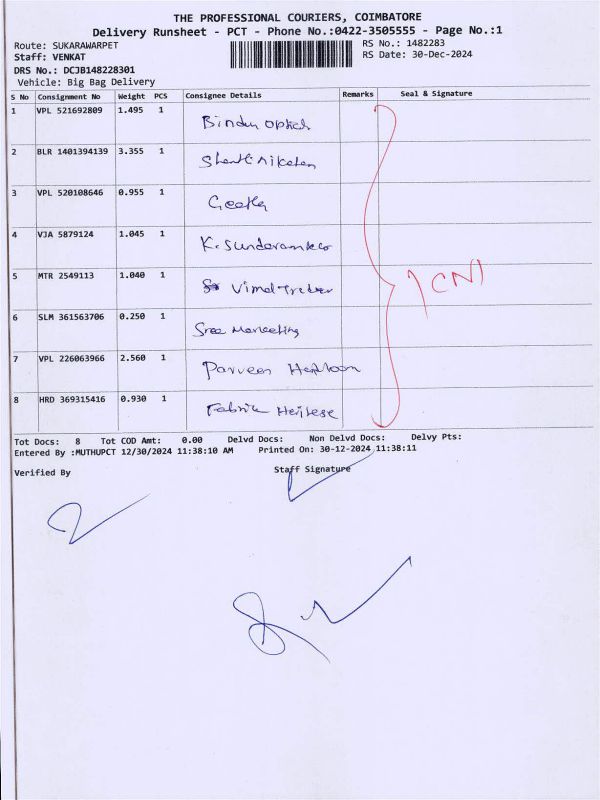 THE PROFESSIONAL COURIERS, COIMBATORE
Delivery Runsheet - PCT - Phone No.:0422-3505555 - Page No.:1
Route: SUKARAWARPET RS No.: 1482283
Staff: VENKAT RS Date: 30-Dec-2024
DRS No.: DCJB148228301
Vehicle: Big Bag Delivery
S No Consignment No Weight PCS Consignee Details Remarks Seal & Signature
1 VPL 521692809 1.495 1 Bindu optical
2 BLR 1401394139 3.355 1 Shanti Niketan
3 VPL 520108646 0.955 1 Geetha
4 VJA 5879124 1.045 1 K. Sundaram
5 MTR 2549113 1.040 1 Vimal
6 SLM 361563706 0.250 1 Sree Marketing
7 VPL 226063966 2.560 1 Parveen Handloom
8 HRD 369315416 0.930 1 Fabric Heritage
Tot Docs: 8 Tot COD Amt: 0.00 Delvd Docs: Non Delvd Docs: Delvy Pts:
Entered By :MUTHUPCT 12/30/2024 11:38:10 AM Printed On: 30-12-2024 11:38:11
Verified By Staff Signature